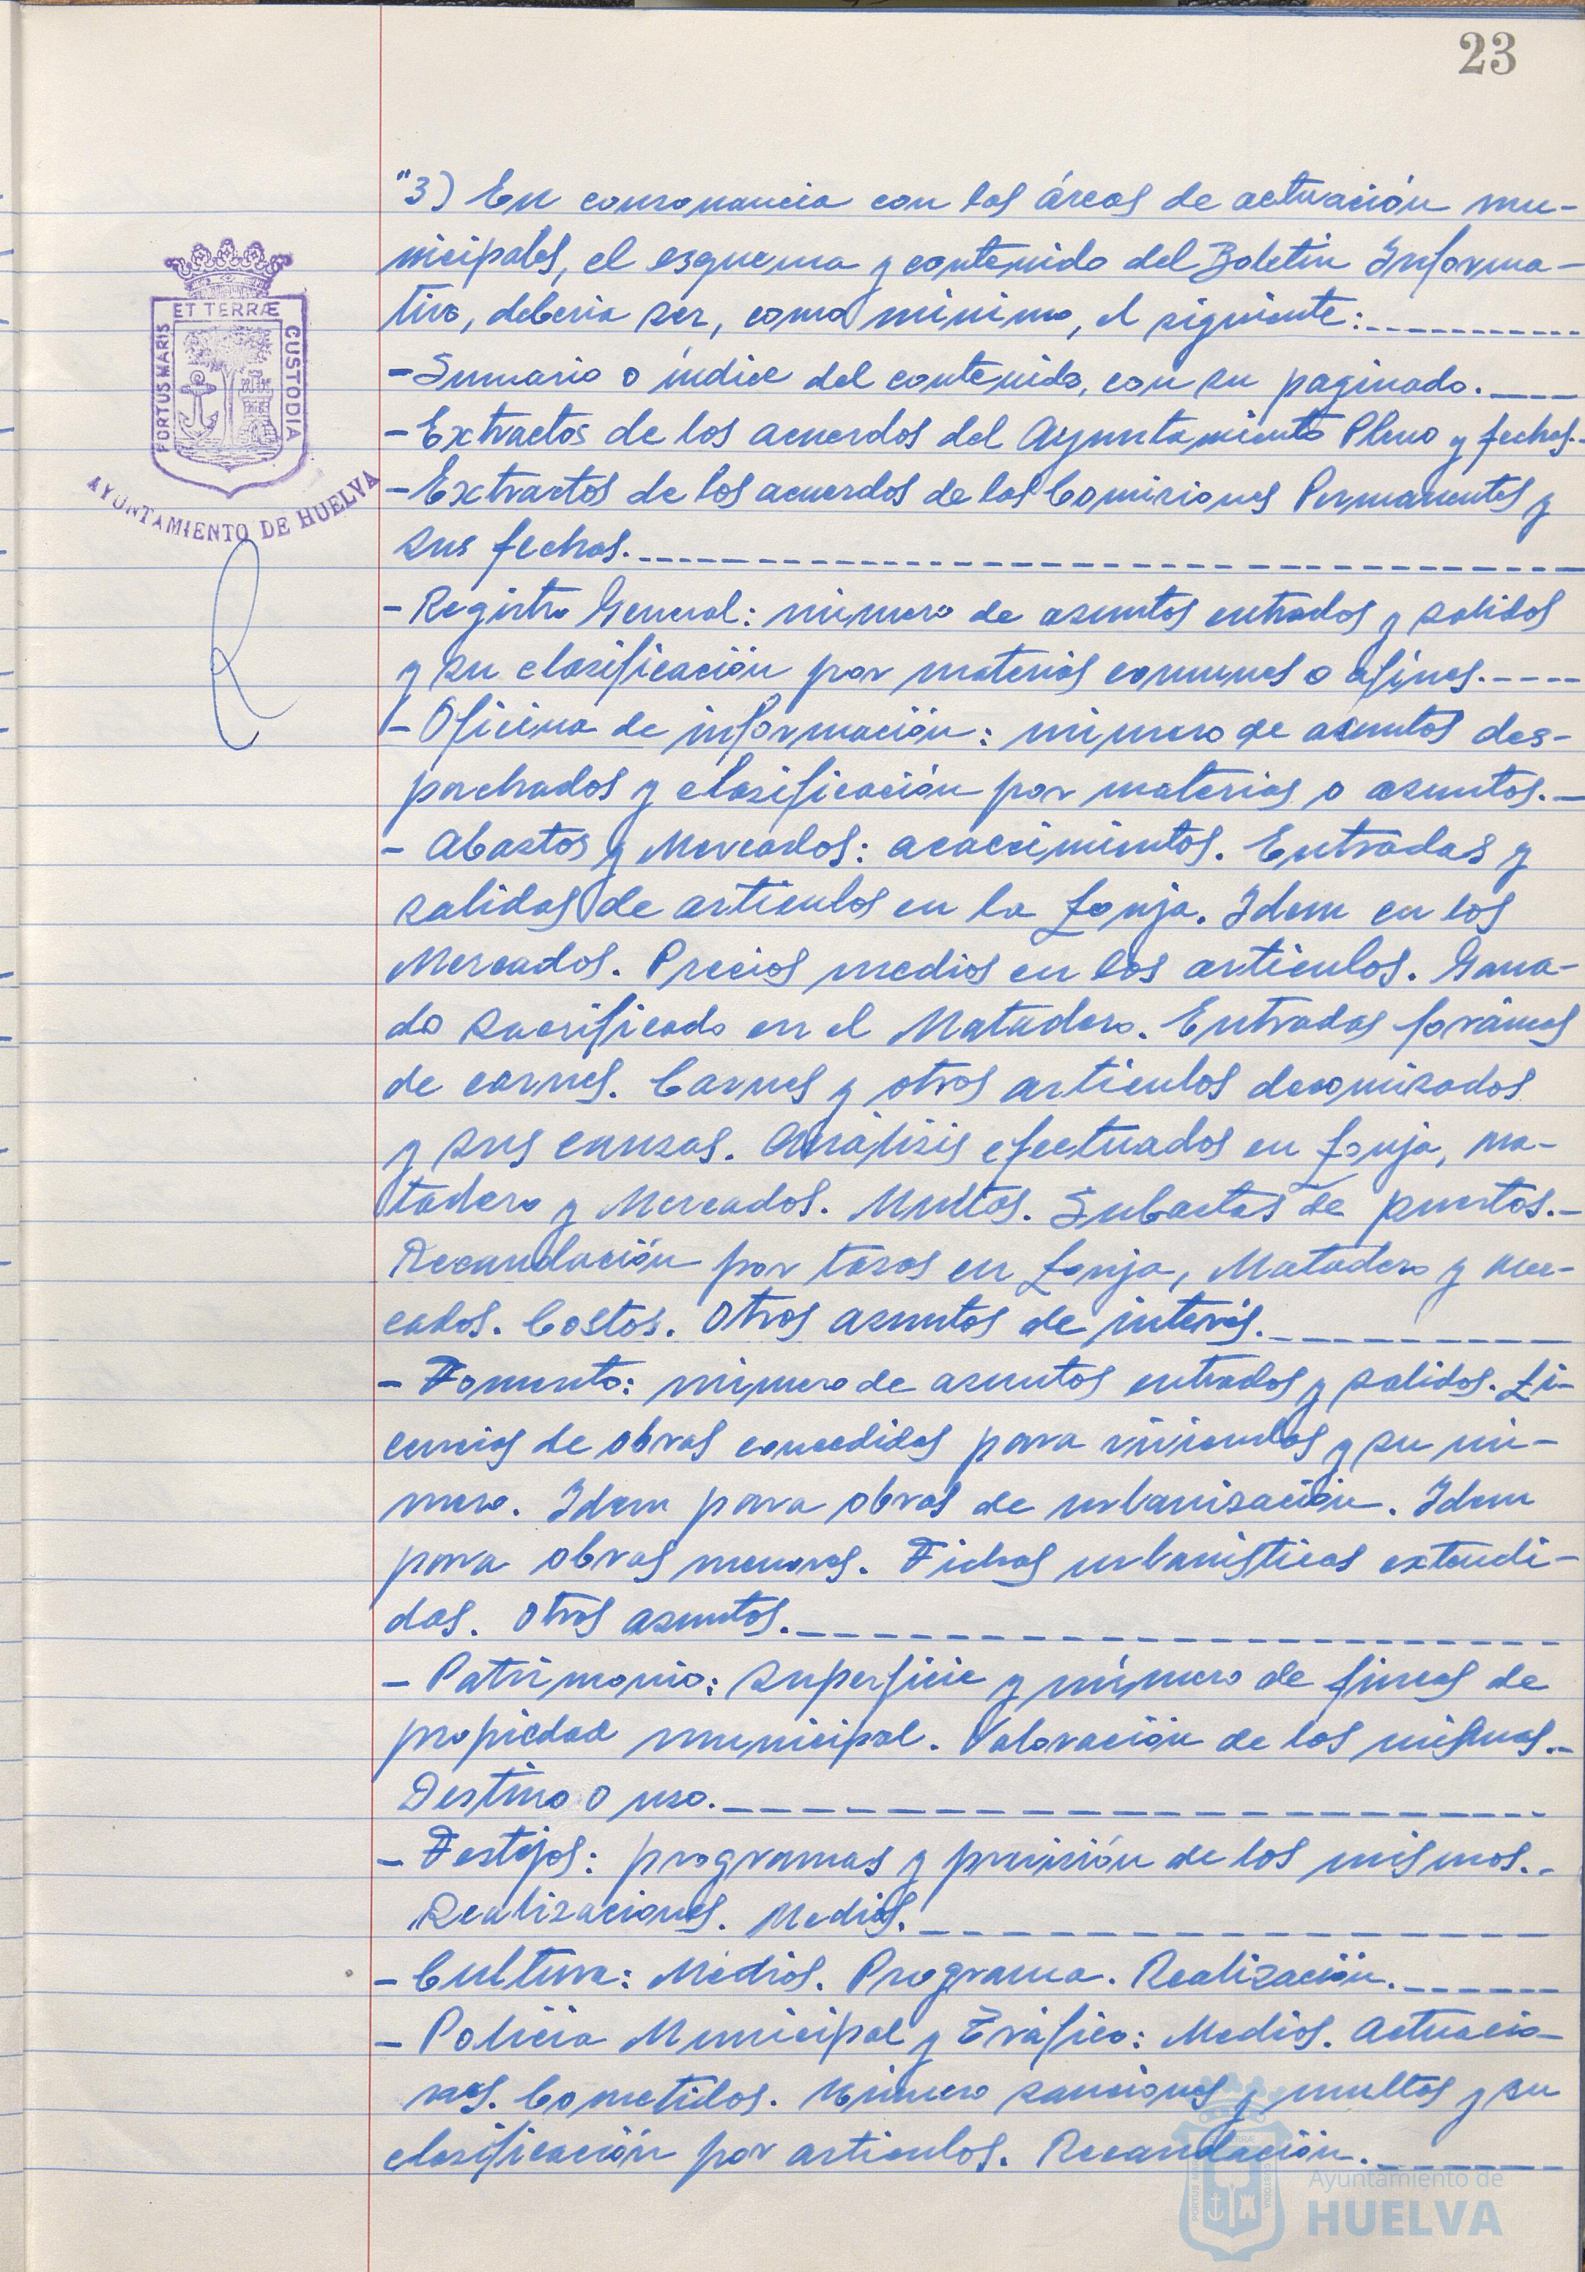 23
"3) En consonancia con las áreas de actuación mu-
nicipales, el esquema y contenido del Boletín Informa-
tivo, debería ser, como mínimo, el siguiente:
-Sumario o índice del contenido, con su paginado.
-Extractos de los acuerdos del Ayuntamiento Pleno y fechas.
-Extractos de los acuerdos de las Comisiones Permanentes y
sus fechas.
-Registro General: número de asuntos entrados y salidos
y su clasificación por materias comunes o afines.
-Oficina de información: número de asuntos des-
pachados y clasificación por materias o asuntos.
- Abastos y Mercados: acaecimientos. Entradas y
salidas de artículos en la Lonja. Idem en los
Mercados. Precios medios en los artículos. Gana-
do sacrificado en el Matadero. Entradas foráneas
de carnes. Carnes y otros artículos decomisados
y sus causas. Análisis efectuados en Lonja, Ma-
tadero y Mercados. Multas. Subastas de puestos.
Recaudación por tasas en Lonja, Matadero y Mer-
cados. Costos. Otros asuntos de interés.
- Fomento: número de asuntos entrados y salidos. Li-
cencias de obras concedidas para viviendas y su nú-
mero. Idem para obras de urbanización. Idem
para obras menores. Fichas urbanísticas extendi-
das. Otros asuntos.
- Patrimonio: superficie y número de fincas de
propiedad municipal. Valoración de las mismas.
Destino o uso.
- Festejos: programas y previsión de los mismos.
Realizaciones. Medios.
- Cultura: Medios. Programa. Realización.
- Policía Municipal y Tráfico: Medios. Actuacio-
nes. Cometidos. Número sanciones y multas y su
clasificación por artículos. Recaudación.
PORTUS MARIS
ET TERRÆ
CUSTODIA
AYUNTAMIENTO DE HUELVA
Ayuntamiento de
HUELVA